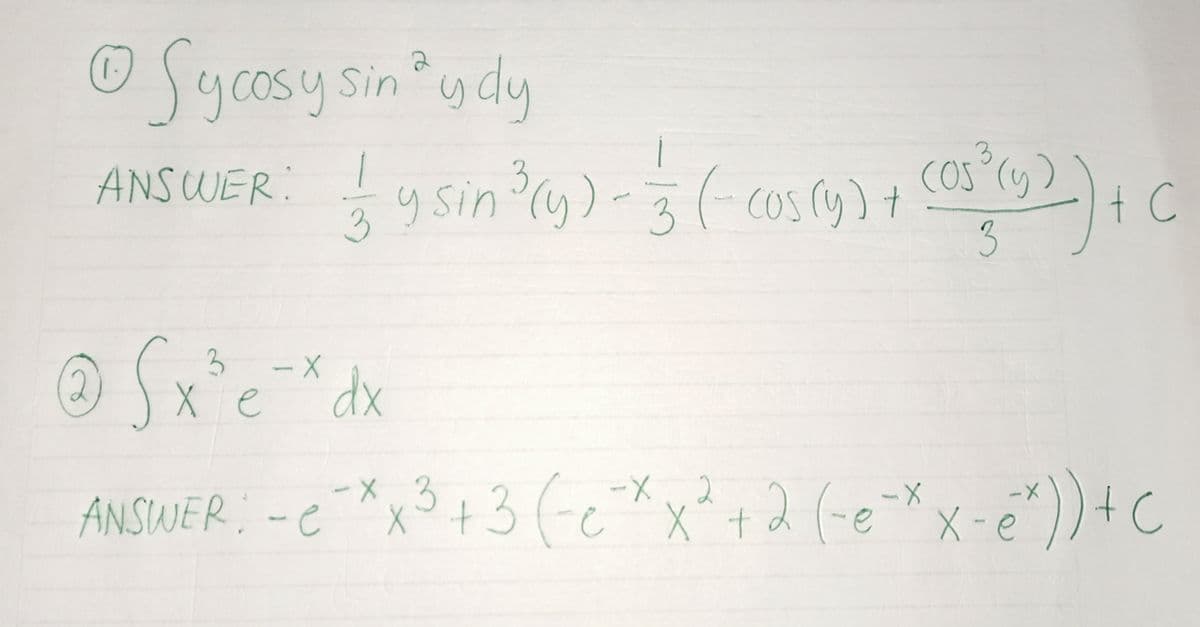 ① ∫ y cos y sin² y dy
ANSWER: 1/3 y sin³(y) - 1/3 (- cos(y) + cos³(y)/3) + C
② ∫ x³ e^-x dx
ANSWER: -e^-x x³ + 3 (-e^-x x² + 2 (-e^-x x - e^-x)) + C